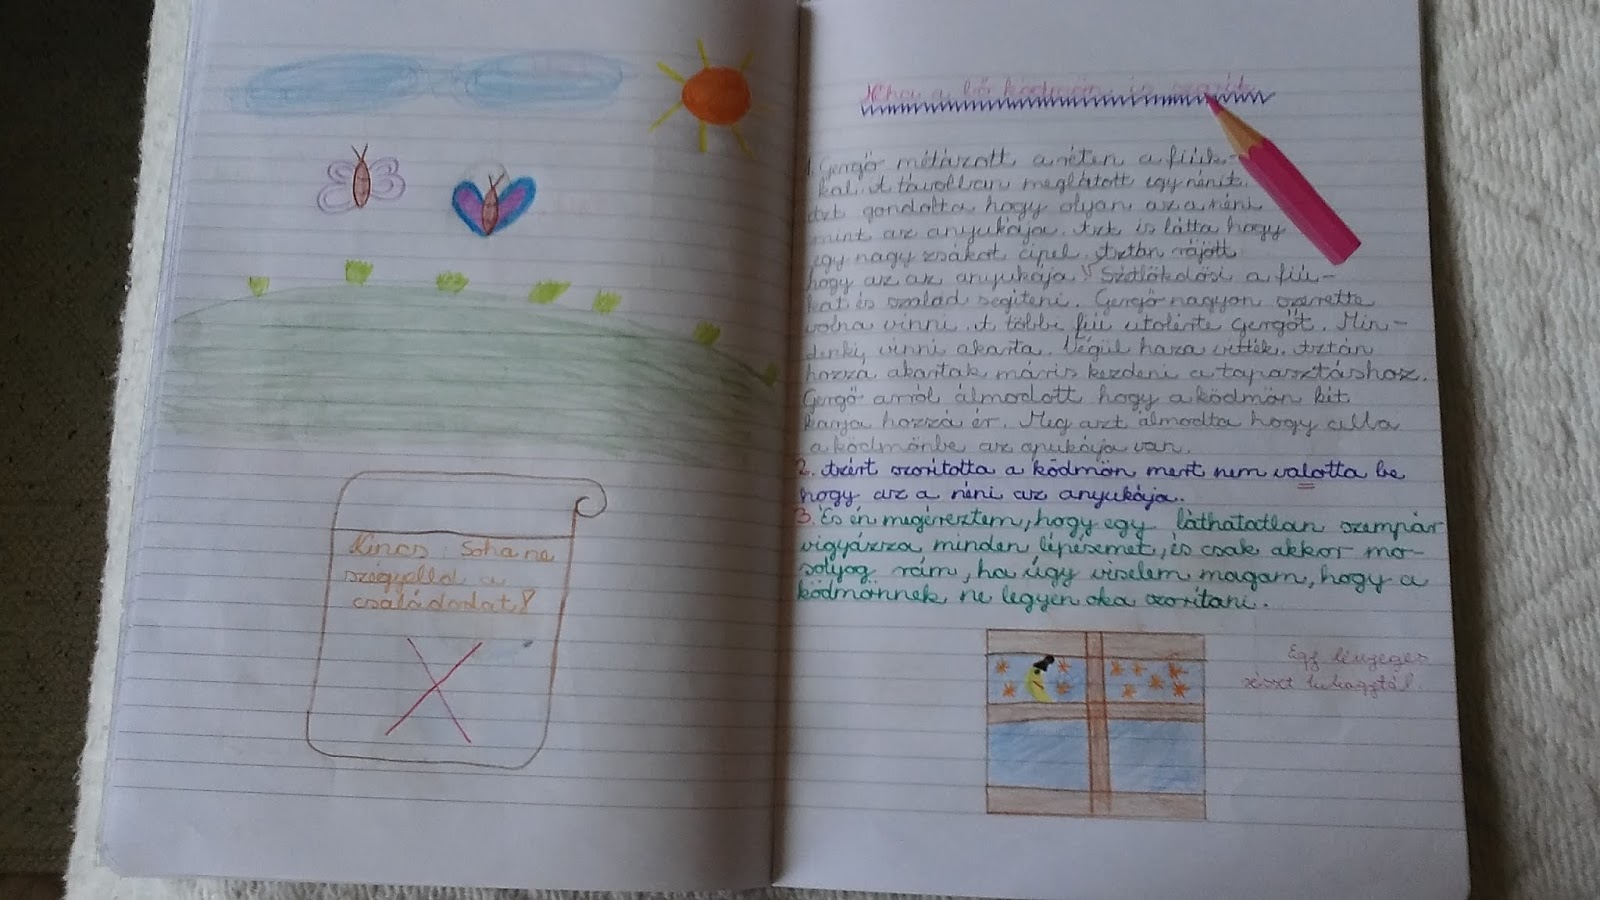 Kincs: Soha ne
szégyelld a
családodat!
Ha a kő ködmön is szorít
1. Gergő métázott a réten a fiúk-
kal. A távolban meglátott egy nénit.
Azt gondolta hogy olyan az a néni
mint az anyukája. Azt is látta hogy
egy nagy zsákot cipel. Aztán rájött
hogy az az anyukája. Szétlökdösi a fiú-
kat és szalad segíteni. Gergő nagyon szerette
volna vinni. A többi fiú utolérte Gergőt. Min-
denki vinni akarta. Végül haza vitték. Aztán
hozzá akartak máris kezdeni a tapasztáshoz.
Gergő arról álmodott hogy a ködmön kit
karja hozzá ér. Meg azt álmodta hogy
a ködmönbe az apukája van.
2. Azért szorította a ködmön mert nem valotta be
hogy az a néni az anyukája.
3. És én megéreztem, hogy egy láthatatlan szempár
vigyázza minden lépésemet, és csak akkor mo-
solyog rám, ha úgy viselem magam, hogy a
ködmönnek ne legyen oka szorítani.
Egy lényeges
részt kihagytál.